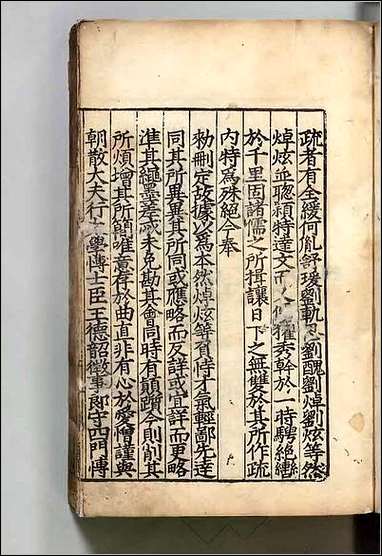 疏者有全緩何胤舒瑗劉軌思劉醜劉焯劉炫等然
焯炫並聰穎特達文而擢秀幹於一時騁絕轡
於千里固諸儒之所揖讓日下之無雙於其所作疏
內特為殊絕今奉
勑刪定故據以為本然焯炫等負恃才氣輕鄙先達
同其所異異其所同或應略而反詳或宜詳而更略
準其繩墨差忒未免勘其會同時有顛躓今則削其
所煩增其所簡唯意存於曲直非有心於愛憎謹與
朝散大夫行學博士臣王德韶徵事郎守四門博